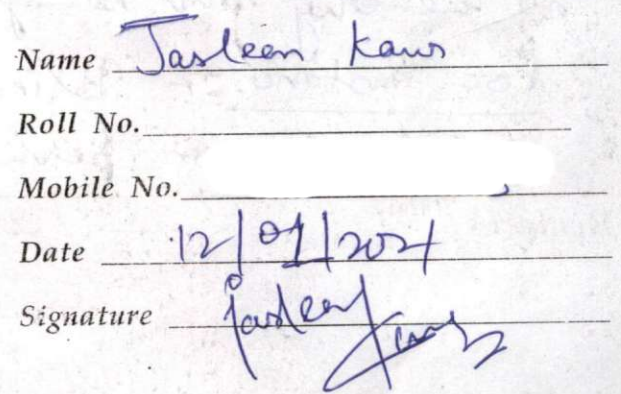 Name Jasleen Kaur
Roll No.
Mobile No.
Date 12/01/2021
Signature Jasleen Kaur